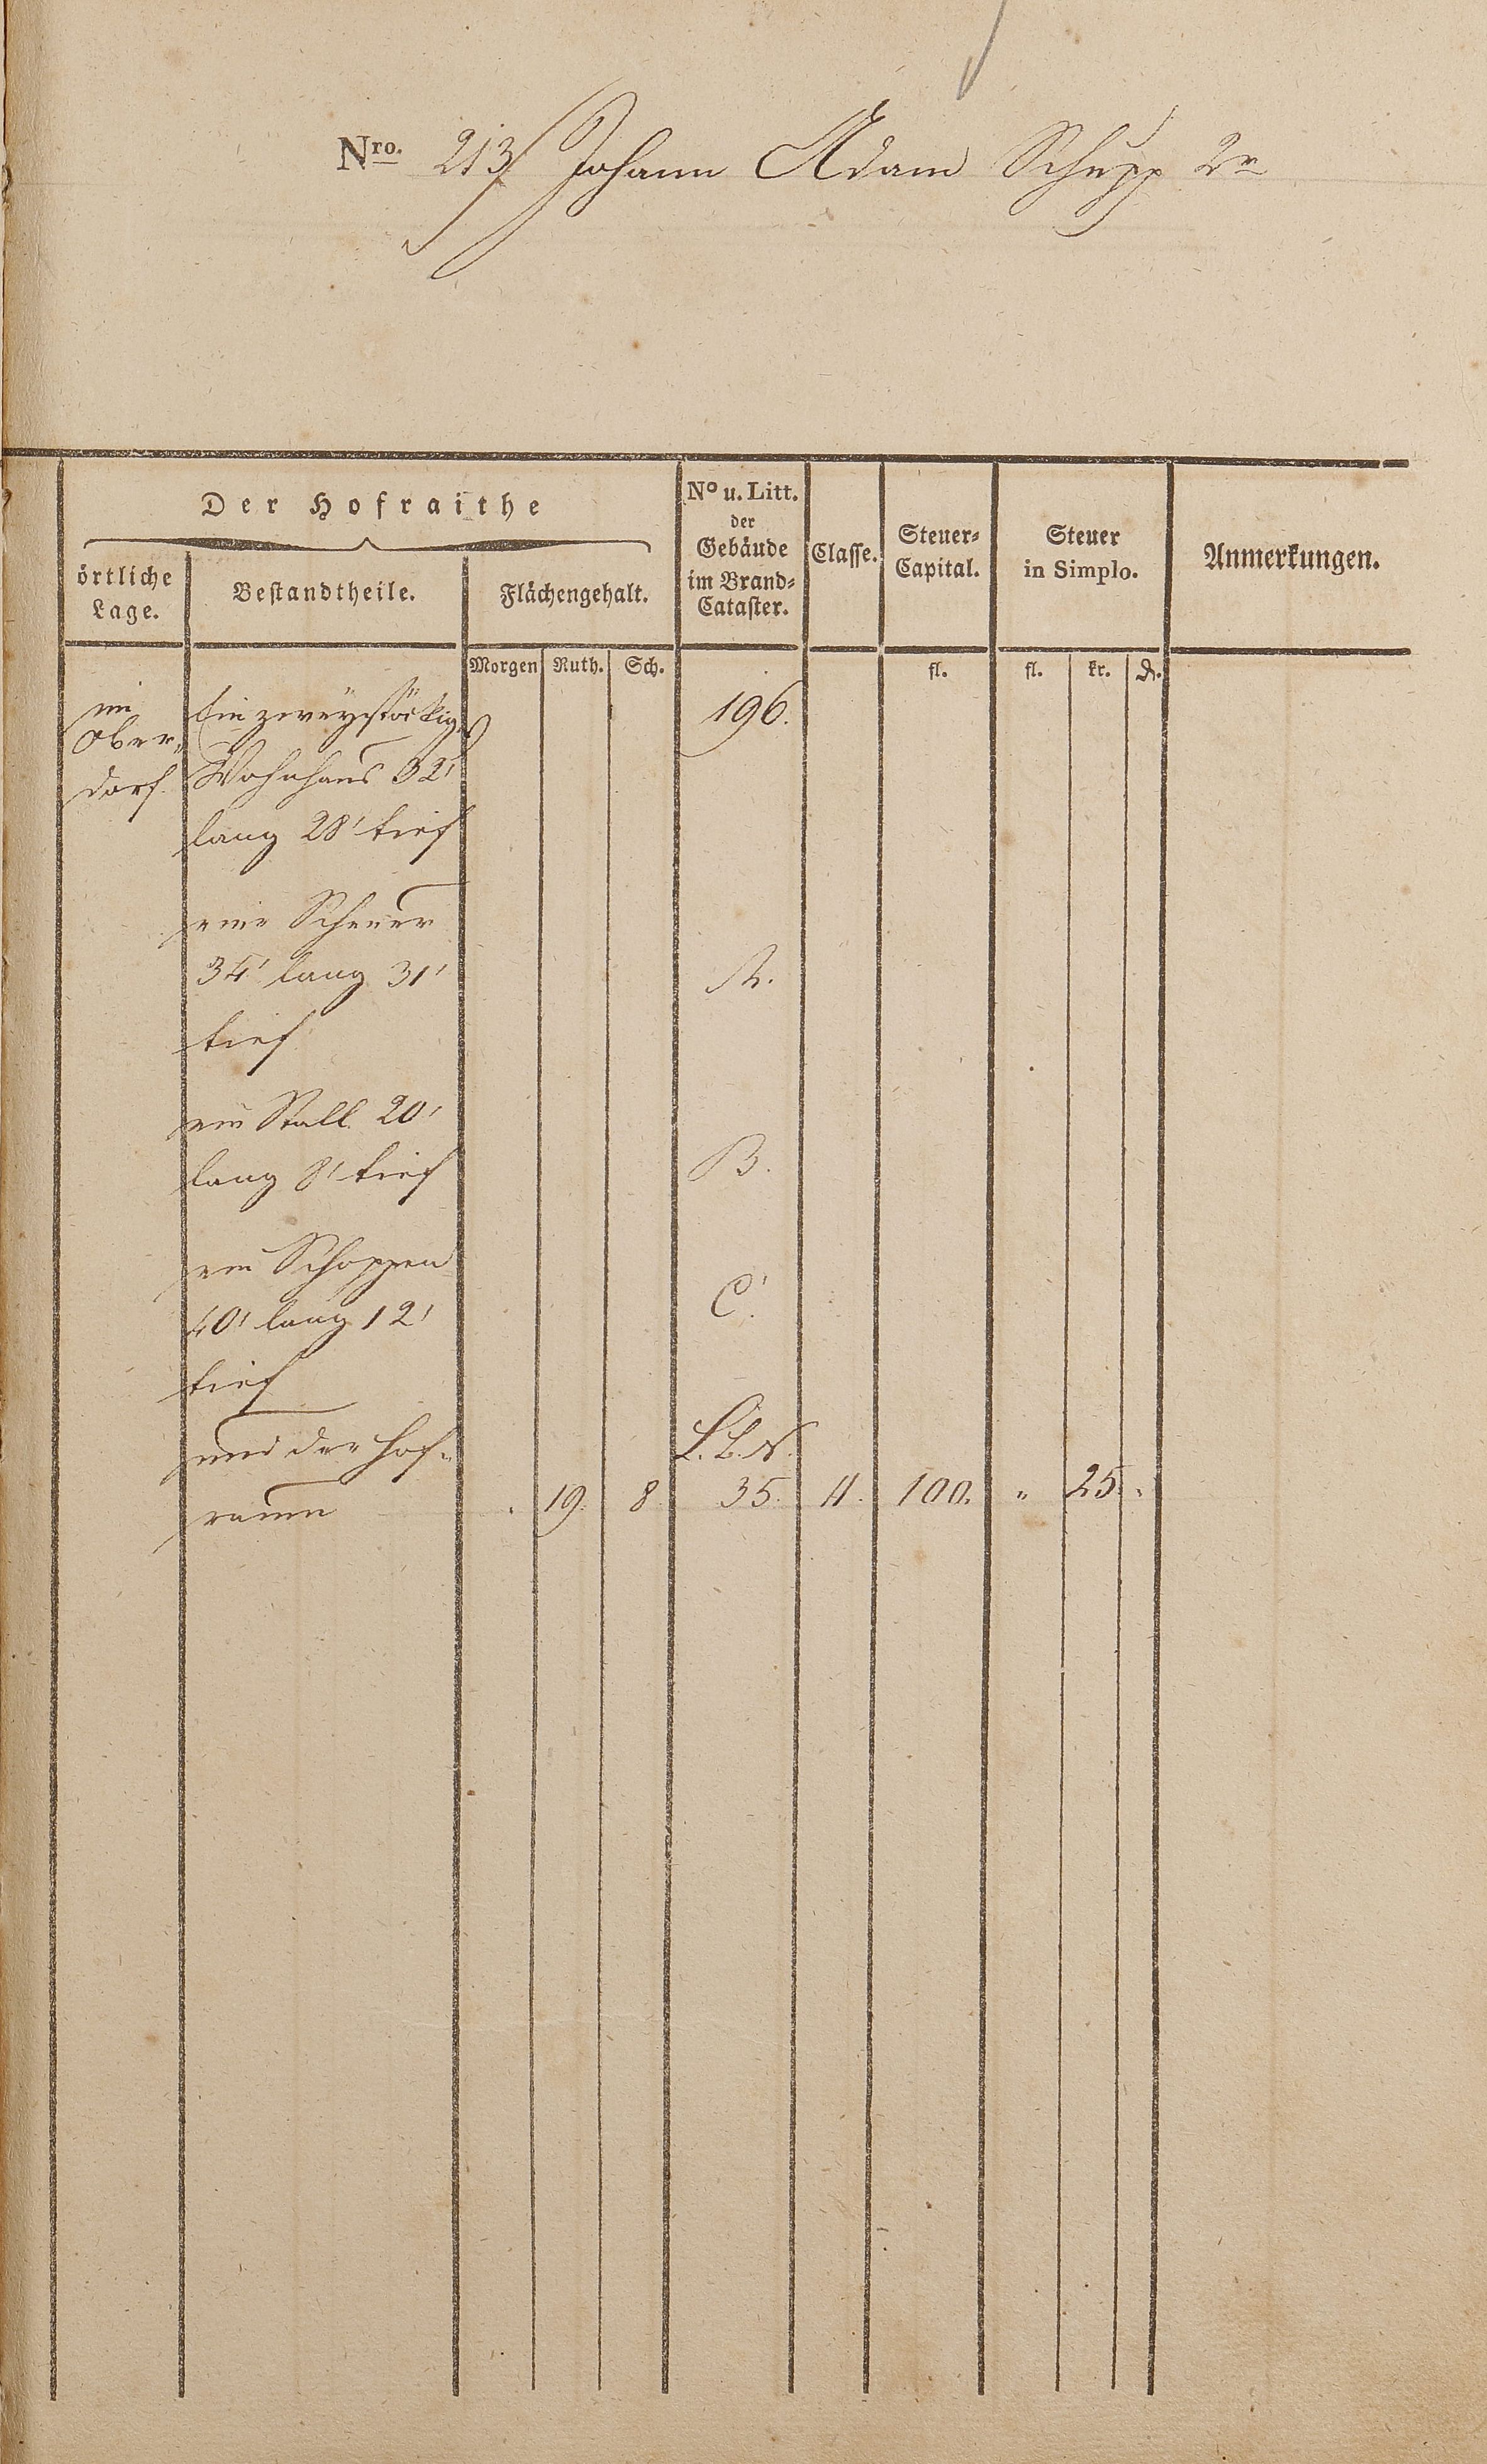 Nro. 213 Johann Adam Schupp 2r
Der Hofraithe
örtliche Lage.
Bestandtheile.
Flächengehalt.
No u. Litt. der Gebäude im Brand-Cataster.
Classe.
Steuer-Capital.
Steuer in Simplo.
Anmerkungen.
Morgen Ruth. Sch. fl. fl. kr. d.
im Ein zweystöckig 196.
Ober-
dorf. Wohnhaus 32'
lang 28' tief
eine Scheuer
34' lang 31' A.
tief
ein Stall 20'
lang 8' tief B.
ein Schoppen
40' lang 12' C.
tief
und der Hof- L.B.N.
raum . 19. 8. 35. 4. 100. " 25. .